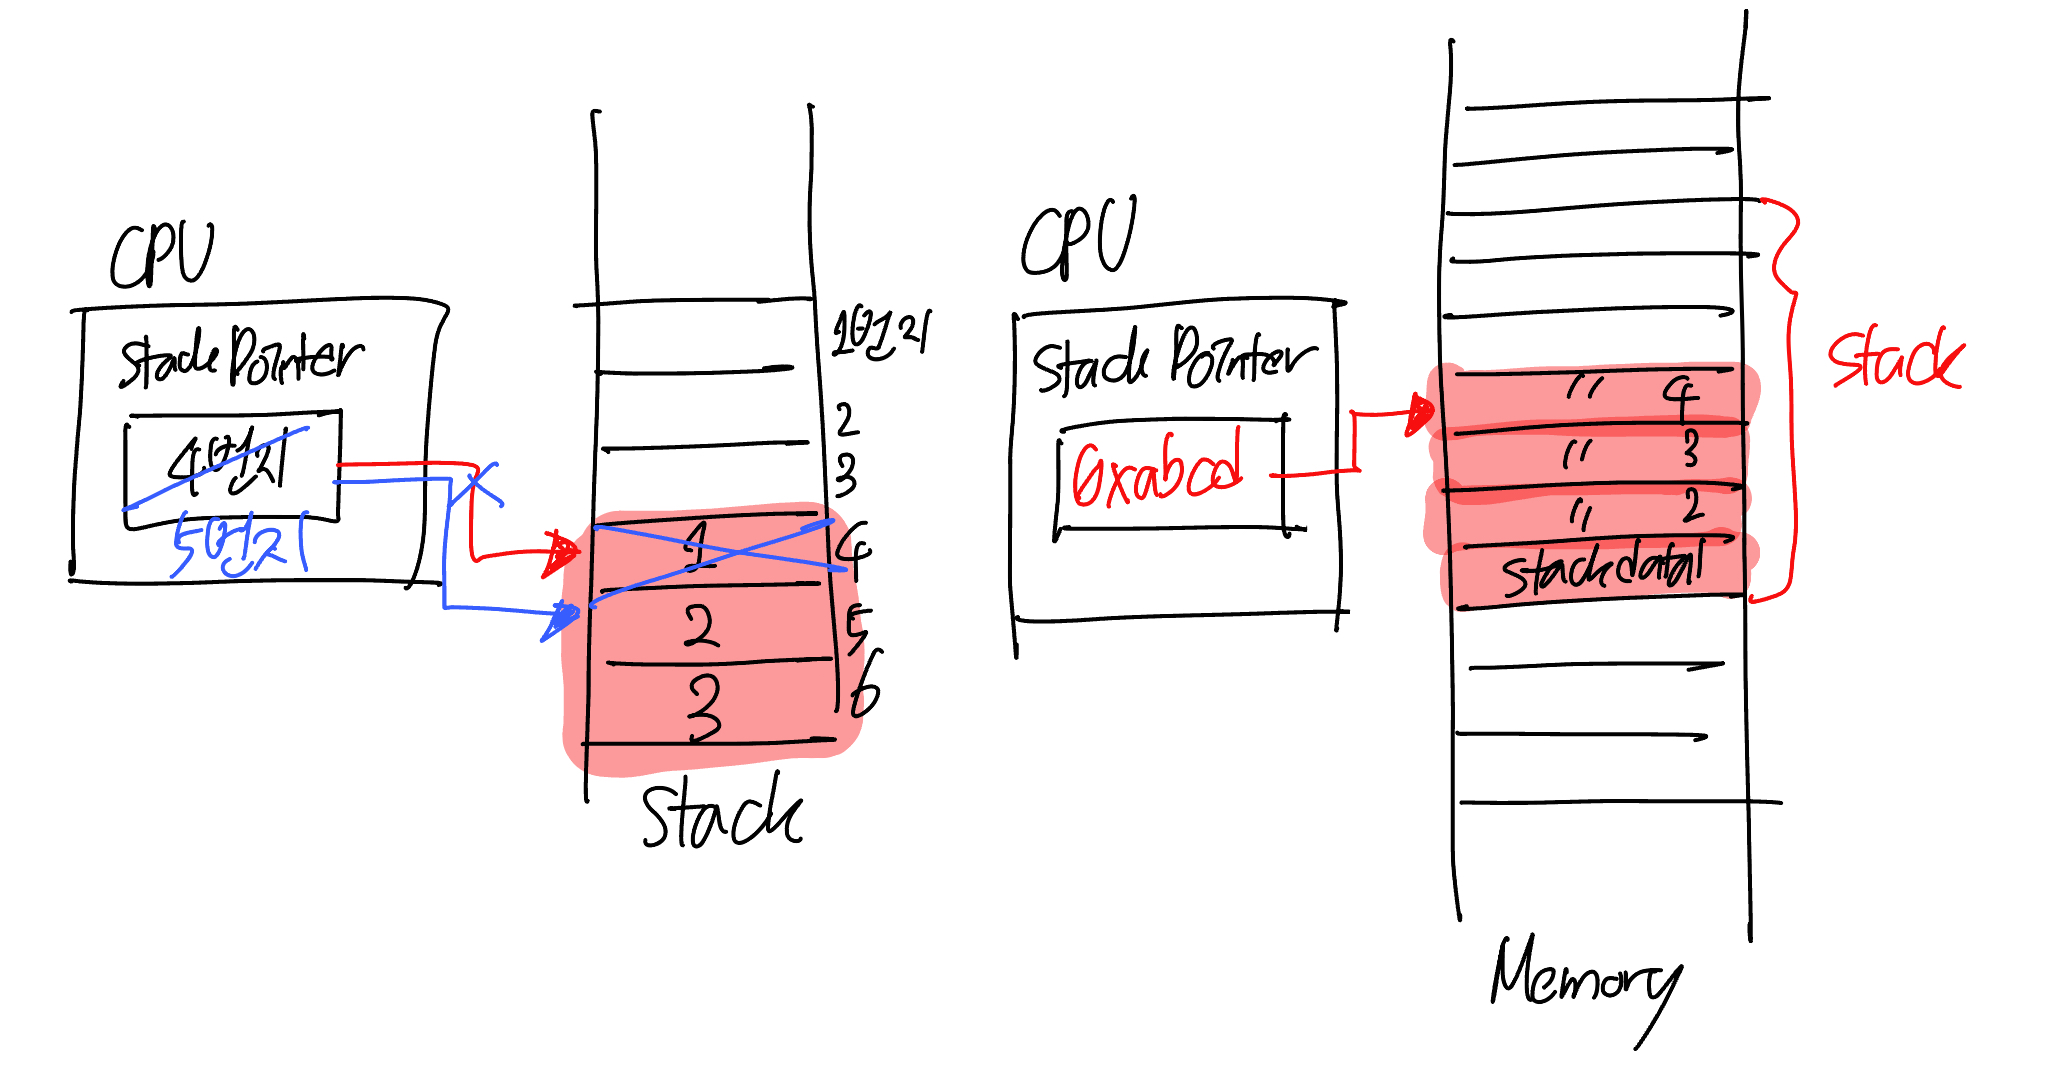 CPU
Stack Pointer
4번지
5번지
1번지
2
3
4
5
6
1
2
3
Stack
CPU
Stack Pointer
0xabcd
〃 4
〃 3
〃 2
stack data1
Stack
Memory